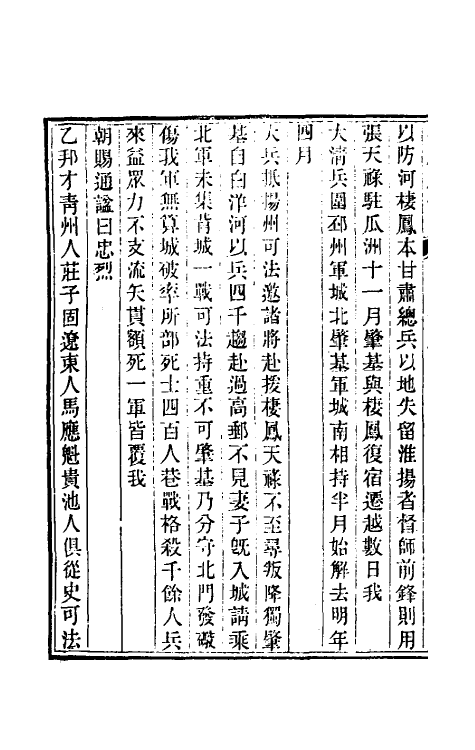 以防河棲鳳本甘肅總兵以地失留淮揚者督師前鋒則用
張天祿駐瓜洲十一月肇基與棲鳳復宿遷越數日我
大清兵圍邳州軍城北肇基軍城南相持半月始解去明年
四月
大兵抵揚州可法邀諸將赴援棲鳳天祿不至尋叛降獨肇
基自白洋河以兵四千趨赴過高郵不見妻子旣入城請乘
北軍未集背城一戰可法持重不可肇基乃分守北門發礮
傷我軍無算城破率所部死士四百人巷戰格殺千餘人兵
來益眾力不支流矢貫額死一軍皆覆我
朝賜通諡曰忠烈
乙邦才青州人莊子固遼東人馬應魁貴池人俱從史可法